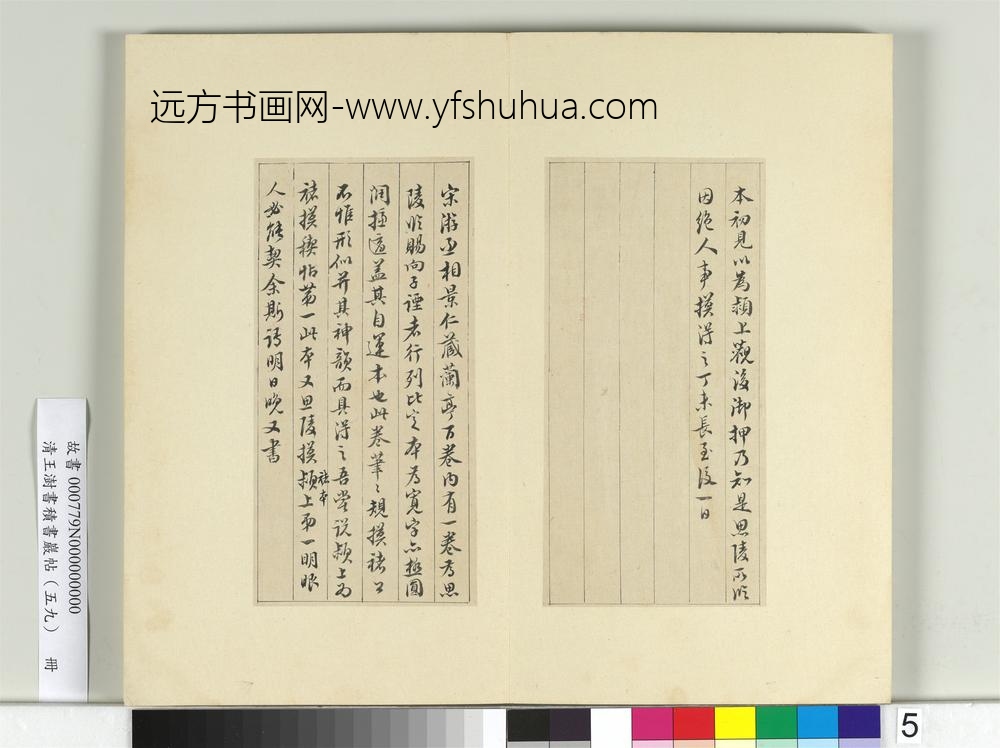 远方书画网-www.yfshuhua.com
本初見以為潁上觀後御押乃知是思陵所臨
因絶人事摸得之丁未長至後一日
宋游丞相景仁藏蘭亭百卷内有一卷為思
陵臨賜向子諲者行列比定本為寬字亦極圓
潤揷適蓋其自運本也此卷筆〻規摸褚公
不惟形似并其神韻而具得之吾嘗説潁上為
褚摸稧帖第一此本又思陵摸潁上第一明眼
褚本
人必能契余斯語明日晚又書
故書 000779N000000000
清王澍書積書巖帖（五九） 冊
5